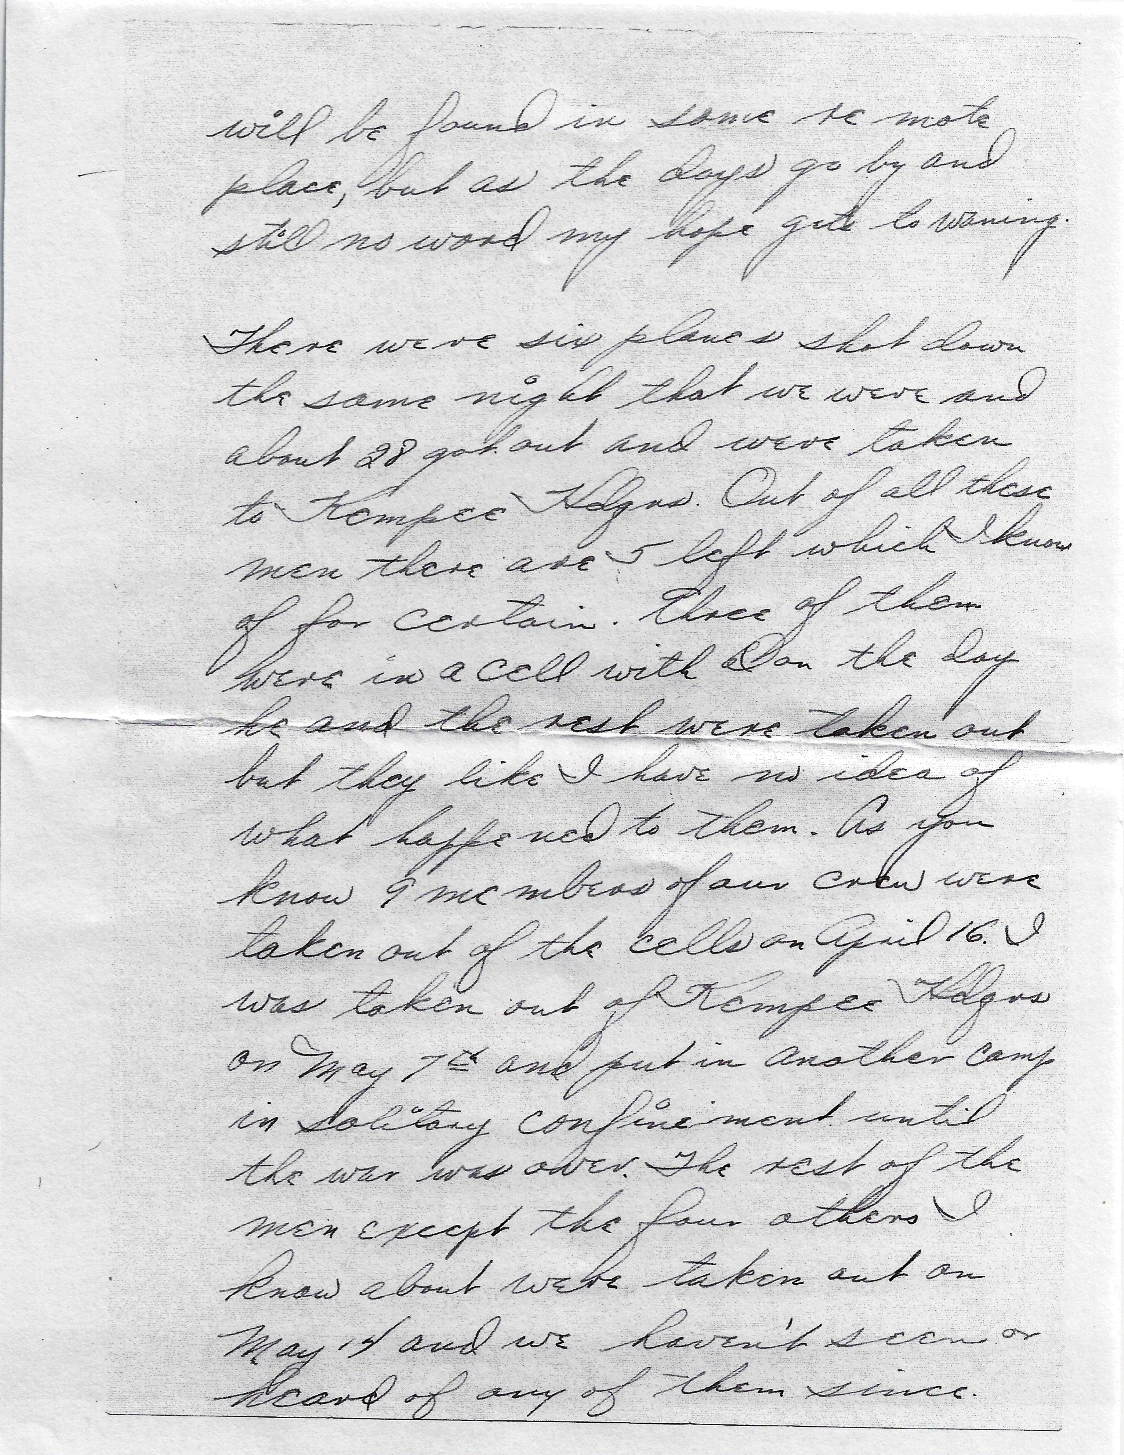 will be found in some re mote
place, but as the days go by and
still no word my hope gets to waning.
There were six planes shot down
the same night that we were and
about 28 got out and were taken
to Kempee Hdqrs. Out of all these
men there are 5 left which I know
of for certain. Three of them
were in a cell with Don the day
he and the rest were taken out
but they like I have no idea of
what happened to them. As you
know 9 members of our crew were
taken out of the cells on April 16. I
was taken out of Kempee Hdqrs
on May 7th and put in another camp
in solitary confinement until
the war was over. The rest of the
men except the four others I
know about were taken out on
May 14 and we haven't seen or
heard of any of them since.